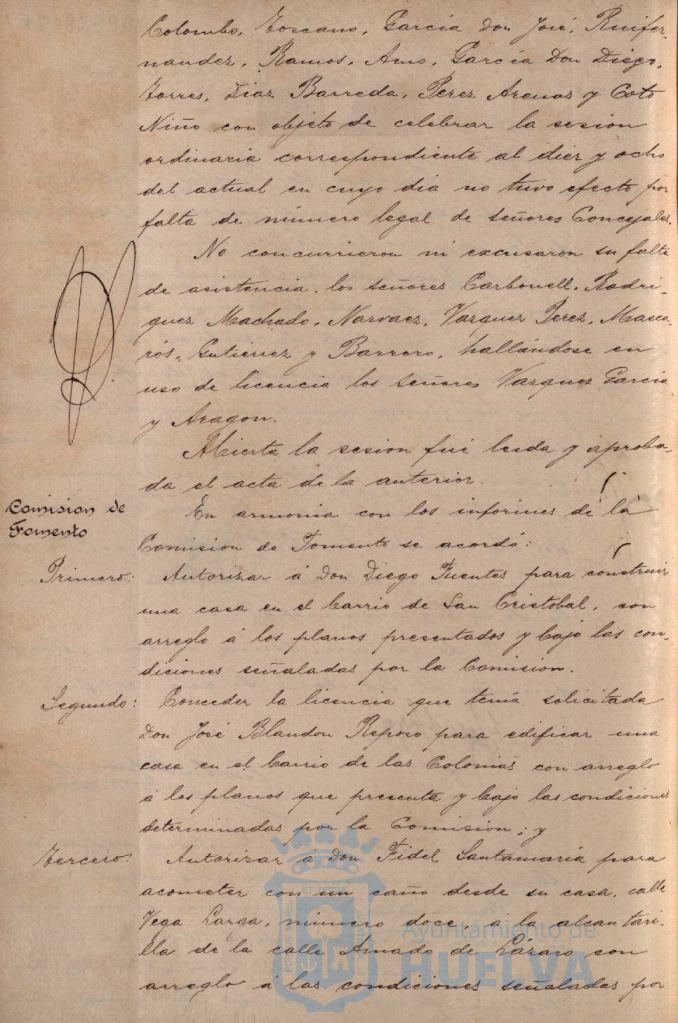 Colombo, Toscano, Garcia Don José, Ruifer-
nandez, Ramos, Amo, Garcia Don Diego,
Torres, Diaz Barreda, Perez Arenas y Coto
Niño con objeto de celebrar la sesion
ordinaria correspondiente al diez y ocho
del actual en cuyo dia no tuvo efecto por
falta de número legal de señores Concejales.
No concurrieron ni excusaron su falta
de asistencia, los señores Carbonell, Rodri-
guez Machado, Narvaez, Vazquez Perez, Masca-
rós, Gutierrez y Barrero, hallándose en
uso de licencia los señores Vazquez Garcia
y Aragon.
Abierta la sesion fué leida y aproba-
da el acta de la anterior.
Comision de
Fomento
En armonia con los informes de la
Comision de Fomento se acordó:
Primero: Autorizar á Don Diego Fuentes para construir
una casa en el barrio de San Cristobal, con
arreglo á los planos presentados y bajo las con-
diciones señaladas por la Comision.
Segundo: Conceder la licencia que tenia solicitada
Don José Blandon Reposo para edificar una
casa en el barrio de las Colonias con arreglo
á los planos que presenta y bajo las condiciones
determinadas por la Comision; y
Tercero: Autorizar á Don Fidel Santamaría para
acometer con un caño desde su casa, calle
Vega Larga, número doce, á la alcantari-
lla de la calle Amado de Lázaro con
arreglo á las condiciones señaladas por
Ayuntamiento de
HUELVA